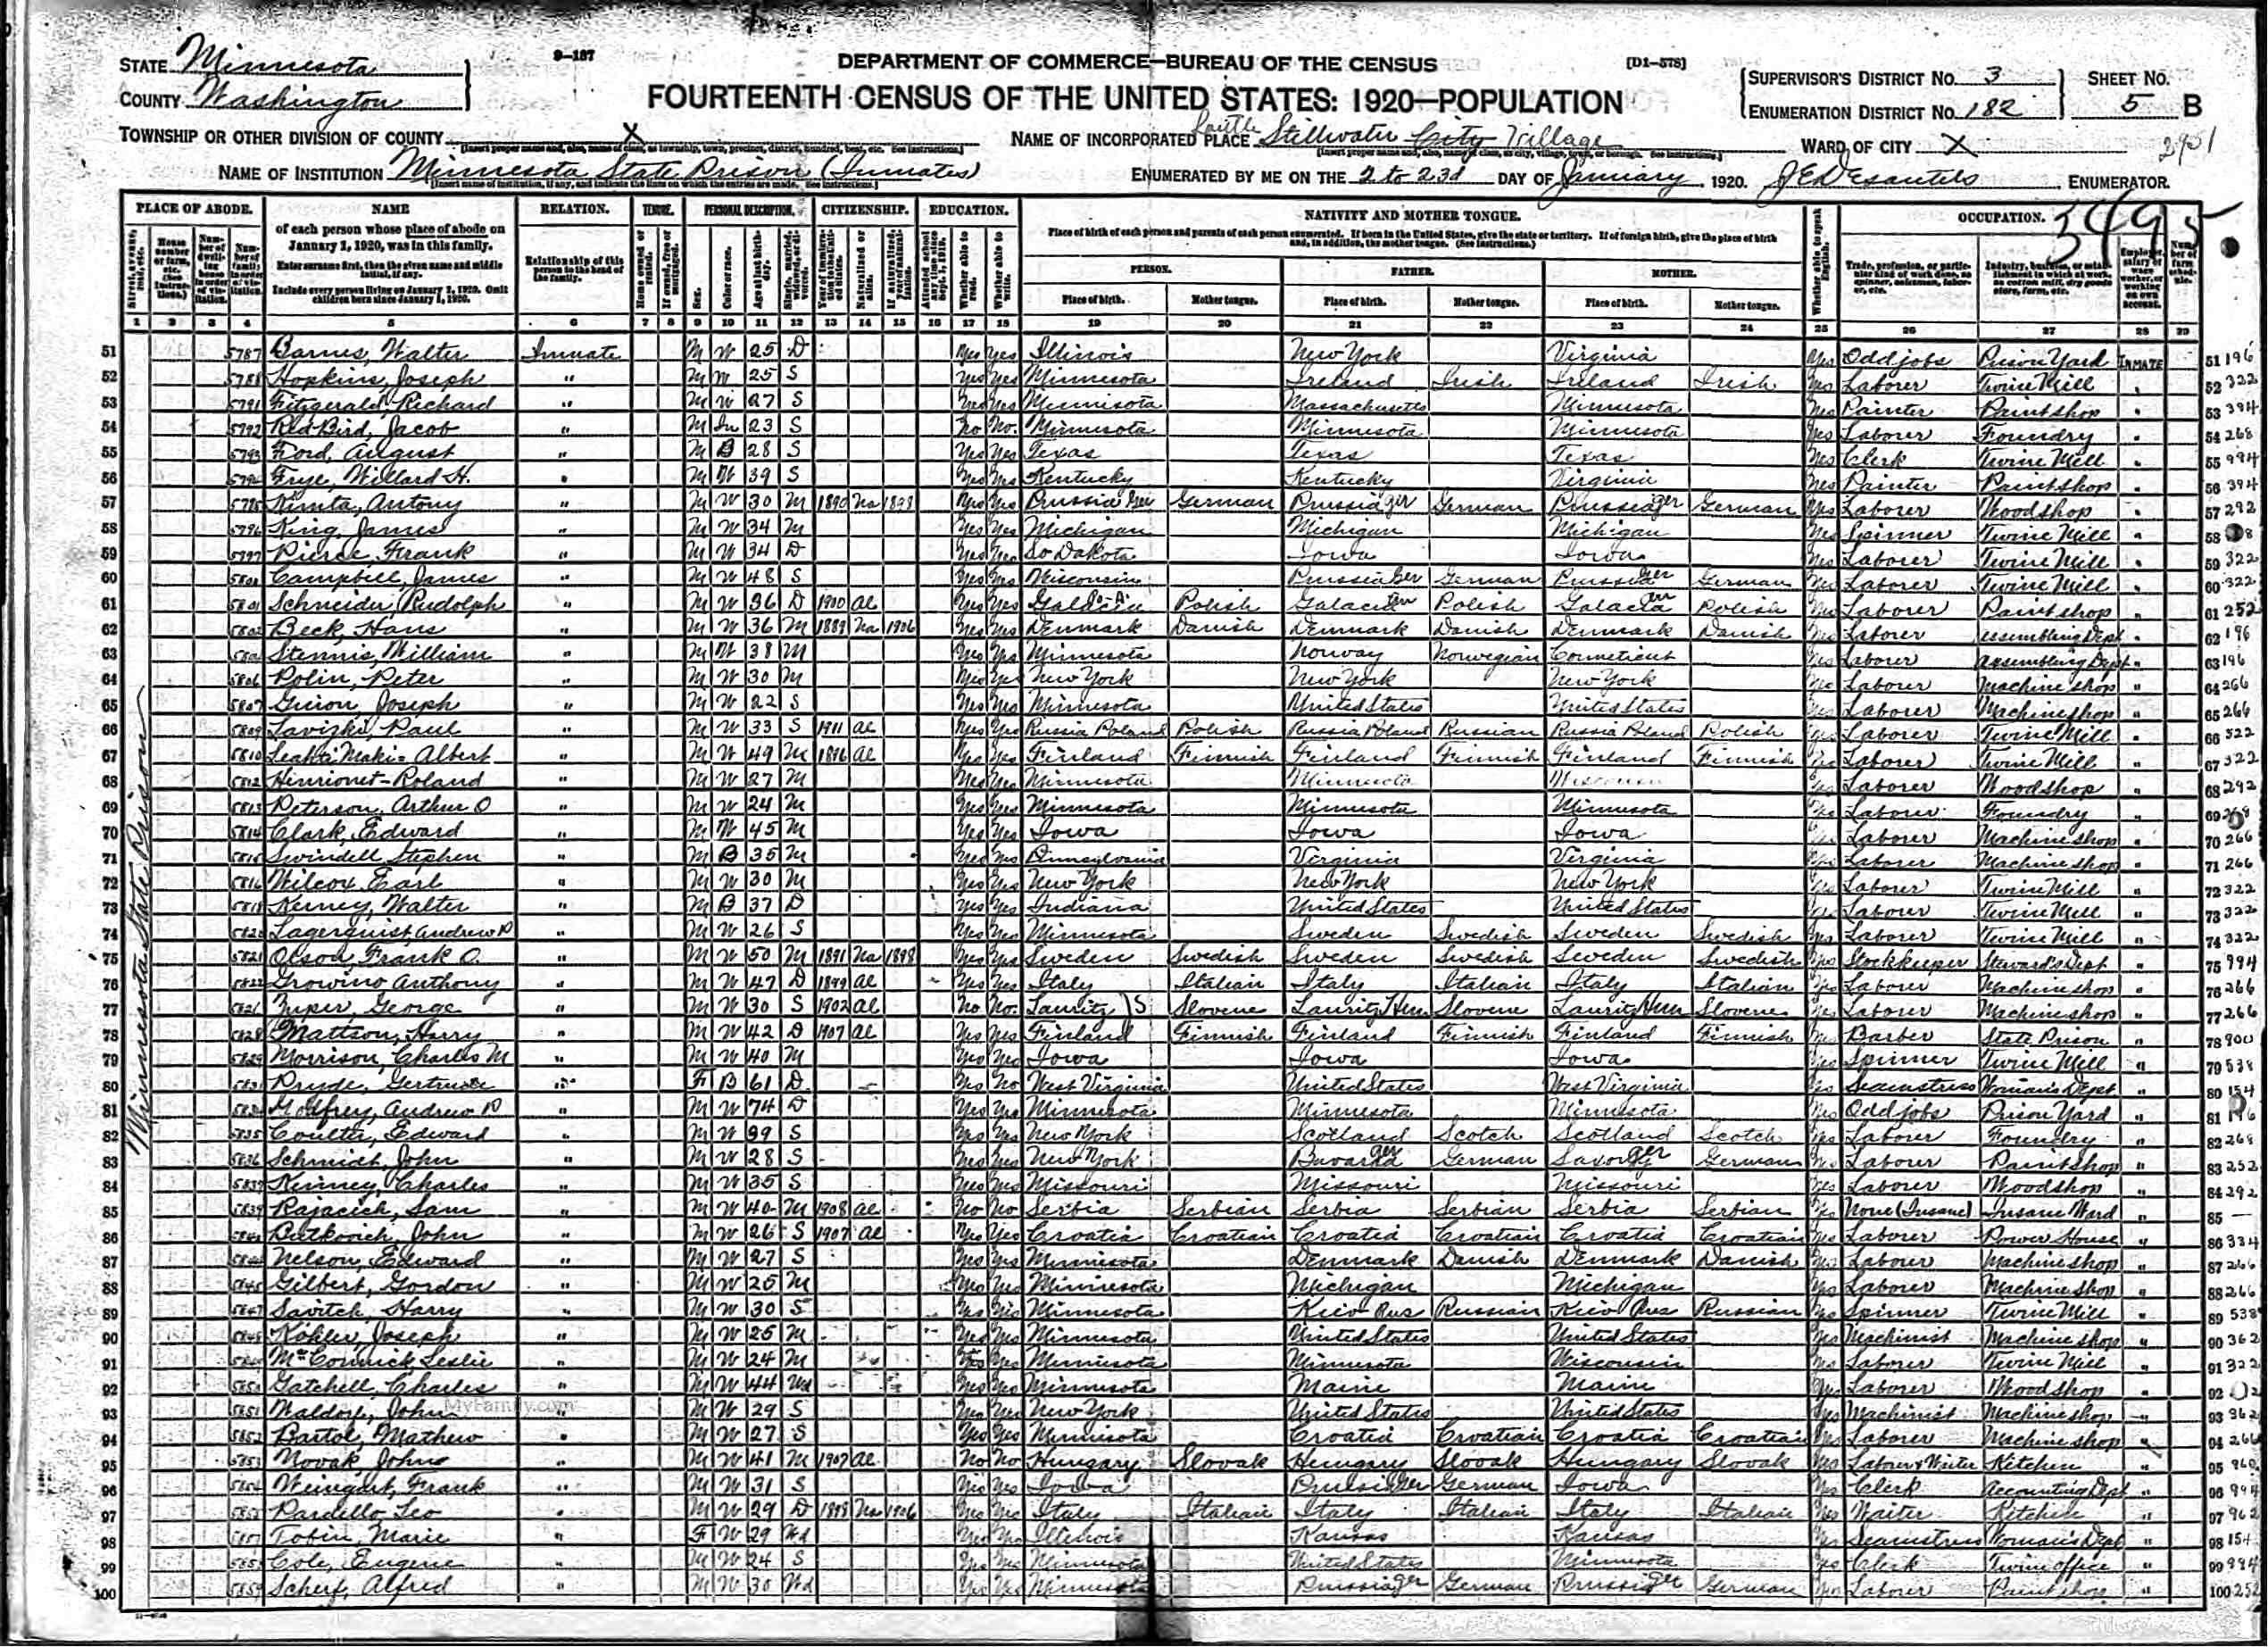 9-187
DEPARTMENT OF COMMERCE—BUREAU OF THE CENSUS
[D1-578]
FOURTEENTH CENSUS OF THE UNITED STATES: 1920—POPULATION
STATE Minnesota
COUNTY Washington
SUPERVISOR'S DISTRICT No. 3
ENUMERATION DISTRICT No. 182
SHEET No. 5 B
2951
TOWNSHIP OR OTHER DIVISION OF COUNTY X
NAME OF INCORPORATED PLACE South Stillwater City Village
WARD OF CITY X
NAME OF INSTITUTION Minnesota State Prison (Inmates)
ENUMERATED BY ME ON THE 2 to 23d DAY OF January, 1920. J E Desautels, ENUMERATOR.
3495
PLACE OF ABODE. NAME RELATION. TENURE. PERSONAL DESCRIPTION. CITIZENSHIP. EDUCATION. NATIVITY AND MOTHER TONGUE. OCCUPATION.
of each person whose place of abode on January 1, 1920, was in this family.
Enter surname first, then the given name and middle initial, if any.
Include every person living on January 1, 1920. Omit children born since January 1, 1920.
Relationship of this person to the head of the family.
Place of birth of each person and parents of each person enumerated. If born in the United States, give the state or territory. If of foreign birth, give the place of birth and, in addition, the mother tongue. (See Instructions.)
PERSON. FATHER. MOTHER.
Place of birth. Mother tongue. Place of birth. Mother tongue. Place of birth. Mother tongue.
1 2 3 4 5 6 7 8 9 10 11 12 13 14 15 16 17 18 19 20 21 22 23 24 25 26 27 28 29
Minnesota State Prison
51 5787 Barnes, Walter Inmate M W 25 D Yes Yes Illinois New York Virginia Yes Odd jobs Prison Yard INMATE 51 196
52 5788 Hopkins, Joseph " M W 25 S Yes Yes Minnesota Ireland Irish Ireland Irish Yes Laborer Twine Mill 52 322
53 5791 Fitzgerald, Richard " M W 27 S Yes Yes Minnesota Massachusetts Minnesota Yes Painter Paint shop 53 394
54 5792 Red Bird, Jacob " M In 23 S No No Minnesota Minnesota Minnesota Yes Laborer Foundry 54 268
55 5793 Ford, August " M B 28 S Yes Yes Texas Texas Texas Yes Clerk Twine Mill 55 994
56 5794 Frye, Willard H. " M W 39 S Yes Yes Kentucky Kentucky Virginia Yes Painter Paint shop 56 394
57 5795 Antony " M W 30 M 1890 Na 1898 Yes Yes Prussia Ger German Prussia Ger German Prussia Ger German Yes Laborer Woodshop 57 292
58 5796 King, James " M W 34 M Yes Yes Michigan Michigan Michigan Yes Spinner Twine Mill 58
59 5797 Pierce, Frank " M W 34 D Yes Yes So Dakota Iowa Iowa Yes Laborer Twine Mill 59 322
60 5800 Campbell, James " M W 48 S Yes Yes Wisconsin Prussia Ger German Prussia Ger German Yes Laborer Twine Mill 60 322
61 5801 Schneider, Rudolph " M W 36 D 1900 Al Yes Yes Polish Polish Polish Yes Laborer Paint shop 61 252
62 5802 Beck, Hans " M W 36 M 1889 Na 1906 Yes Yes Denmark Danish Denmark Danish Denmark Danish Yes Laborer Assembling Dept 62 196
63 Stennis, William " M W 38 M Yes Yes Minnesota Norway Norwegian Connecticut Yes Laborer Assembling Dept " 63 196
64 5806 Polin, Peter " M W 30 M Yes Yes New York New York New York Yes Laborer Machine shop " 64 266
65 5807 Joseph " M W 22 S Yes Yes Minnesota United States United States Yes Laborer Machine shop " 65 266
66 5809 Paul " M W 33 S 1911 Al Yes Yes Russia Poland Polish Russia Poland Russian Russia Poland Polish Yes Laborer Twine Mill " 66 322
67 5810 Albert " M W 49 M 1896 Al Yes Yes Finland Finnish Finland Finnish Finland Finnish Yes Laborer Twine Mill " 67 322
68 5812 Henrionet - Roland " M W 27 M Yes Yes Minnesota Minnesota Yes Laborer Woodshop " 68 292
69 5813 Peterson, Arthur O " M W 24 M Yes Yes Minnesota Minnesota Minnesota Yes Laborer Foundry " 69
70 5814 Clark, Edward " M W 45 M Yes Yes Iowa Iowa Iowa Laborer Machine shop " 70 266
71 5815 Swindell, Stephen " M B 35 M Yes Yes Pennsylvania Virginia Virginia Yes Laborer Machine shop " 71 266
72 5816 Wilcox, Earl " M W 30 M Yes Yes New York New York New York Yes Laborer Twine Mill " 72 322
73 5818 Kerney, Walter " M B 37 D Yes Yes Indiana United States United States Yes Laborer Twine Mill " 73 322
74 5820 Lagerquist, Andrew P " M W 26 S Yes Yes Minnesota Sweden Swedish Sweden Swedish Yes Laborer Twine Mill " 74 322
75 5821 Olson, Frank O. " M W 50 M 1891 Na 1898 Yes Yes Sweden Swedish Sweden Swedish Sweden Swedish Yes Stockkeeper Steward's Dept " 75 994
76 5822 Anthony " M W 47 D 1899 Al Yes Yes Italy Italian Italy Italian Italy Italian Yes Laborer Machine shop " 76 266
77 George " M W 30 S 1902 Al No No. Slovene Slovene Slovene Yes Laborer Machine shop " 77 266
78 5828 Mattson, Harry " M W 42 D 1907 Al Yes Yes Finland Finnish Finland Finnish Finland Finnish Yes Barber State Prison " 78 900
79 5829 Morrison, Charles M " M W 40 M Yes Yes Iowa Iowa Iowa Yes Spinner Twine Mill " 79 538
80 5831 Pryde, Gertrude " F B 61 D Yes No West Virginia United States West Virginia Yes Seamstress Woman's Dept " 80 154
81 5834 Godfrey, Andrew P " M W 74 D Yes Yes Minnesota Minnesota Minnesota Yes Odd jobs Prison Yard " 81
82 5835 Coulter, Edward " M W 39 S Yes Yes New York Scotland Scotch Scotland Scotch Yes Laborer Foundry " 82 268
83 5836 Schmidt, John " M W 28 S Yes Yes New York Bavaria Ger German Saxony Ger German Yes Laborer Paint shop " 83 252
84 5837 Kinney, Charles " M W 35 S Yes Yes Missouri Missouri Missouri Yes Laborer Woodshop " 84 292
85 5839 Rajacich, Sam " M W 40 M 1908 Al No No Serbia Serbian Serbia Serbian Serbia Serbian Yes None (Insane) Insane Ward " 85 —
86 Butkovich, John " M W 26 S 1907 Al Yes Yes Croatia Croatian Croatia Croatian Croatia Croatian Yes Laborer Power House " 86 334
87 Nelson, Edward " M W 27 S Yes Yes Minnesota Denmark Danish Denmark Danish Yes Laborer Machine shop " 87 266
88 5845 Gilbert, Gordon " M W 25 M Yes Yes Minnesota Michigan Michigan Yes Laborer Machine Shop " 88 266
89 5847 Savitch, Harry " M W 30 S Yes Yes Minnesota Kiev Rus Russian Kiev Rus Russian Yes Spinner Twine Mill " 89 538
90 5848 Kohler, Joseph " M W 25 M Yes Yes Minnesota United States United States Yes Machinist Machine shop " 90 362
91 McCormick, Leslie " M W 24 M Yes Yes Minnesota Minnesota Wisconsin Yes Laborer Twine Mill " 91 322
92 5850 Gatchell, Charles " M W 44 Wd Yes Yes Minnesota Maine Maine Yes Laborer Woodshop " 92
93 5851 Waldorf, John " M W 29 S Yes Yes New York United States United States Yes Machinist Machine shop " 93 362
MyFamily.com
94 5852 Bartol, Mathew " M W 27 S Yes Yes Minnesota Croatia Croatian Croatia Croatian Yes Laborer Machine shop " 94 266
95 5853 Novak, John " M W 41 M 1907 Al No No Hungary Slovak Hungary Slovak Hungary Slovak Yes Laborer Kitchen " 95
96 5854 Weingart, Frank " M W 31 S Yes Yes Iowa Prussia Ger German Iowa Yes Clerk Accounting Dept " 96 994
97 5855 Pardello, Leo " M W 29 D 1898 Na 1906 Yes Yes Italy Italian Italy Italian Italy Italian Yes Waiter Kitchen " 97 962
98 5857 Tobin, Marie " F W 29 Wd Yes Yes Illinois Kansas Kansas Yes Seamstress Woman's Dept " 98 154
99 5858 Cole, Eugene " M W 24 S Yes Yes Minnesota United States Minnesota Yes Clerk Twine office " 99 994
100 5859 Scherf, Alfred " M W 30 Wd Yes Yes Minnesota Prussia Ger German Prussia Ger German Yes Laborer Paint shop " 100 252